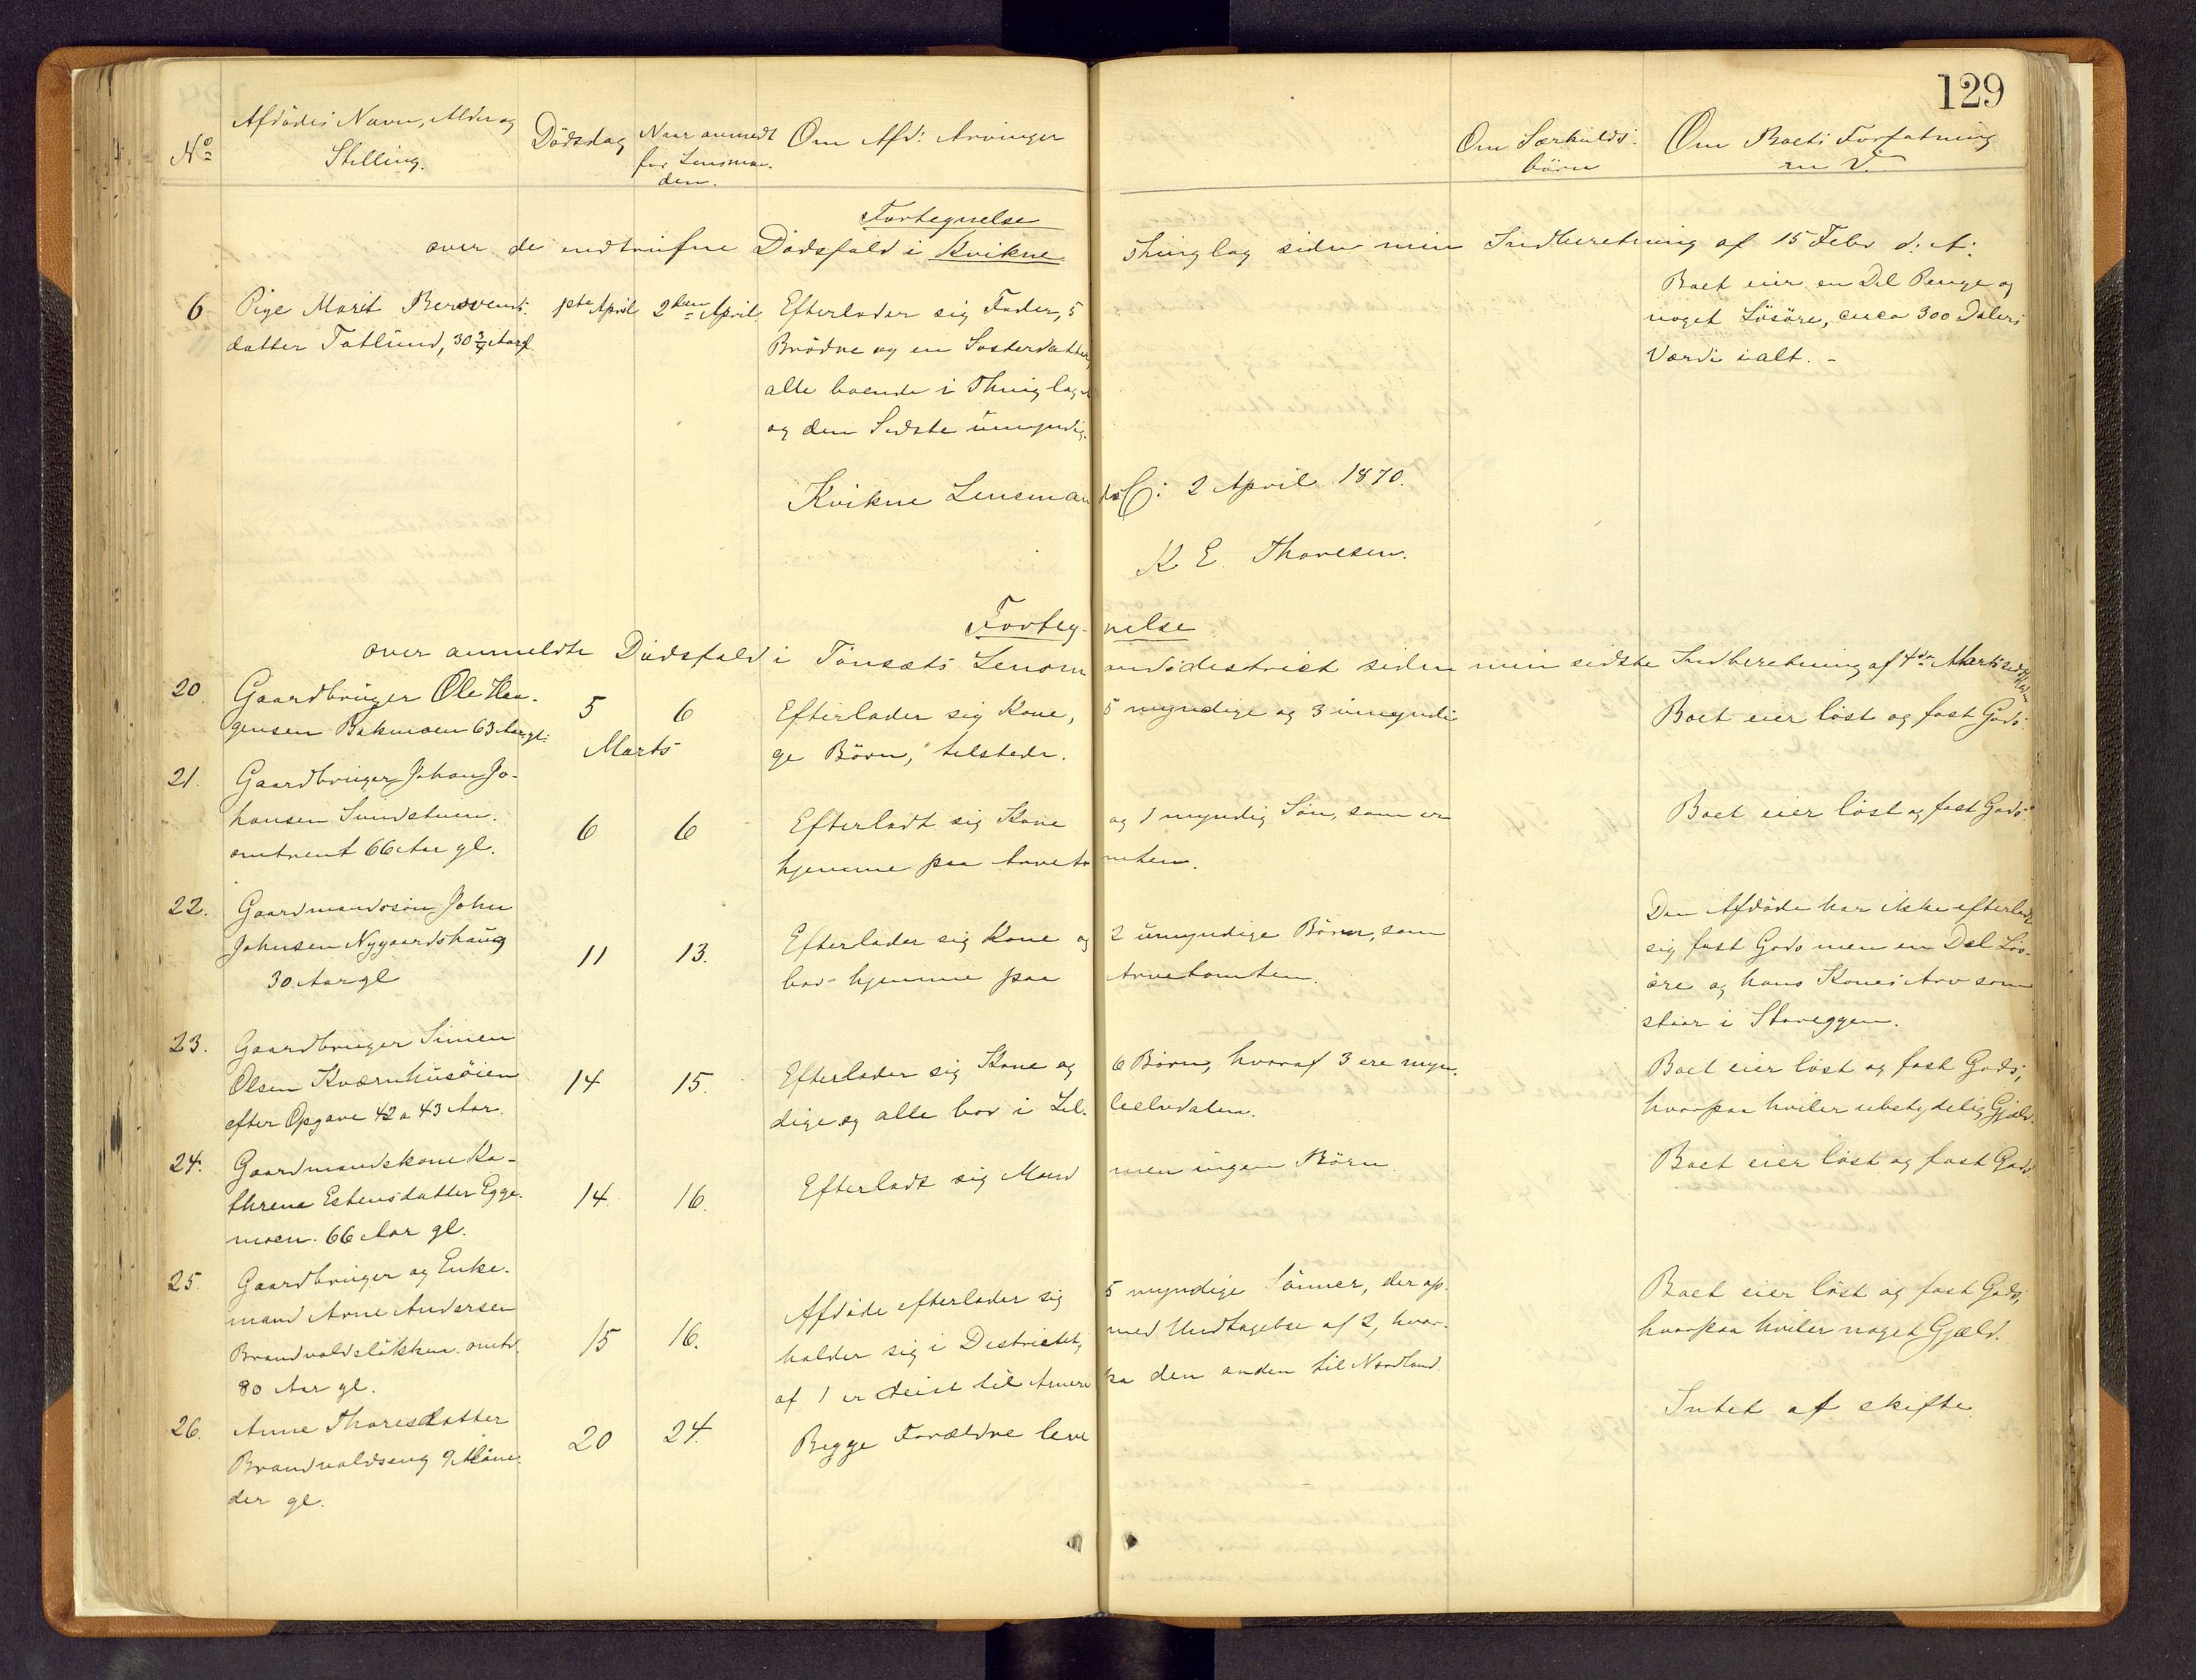 129
No Afdødes Navn, Alder og Stilling. Dödsdag Naar anmeldt for Lensmanden. Om Afd: Arvinger Om Særkulds börn Om Boets Forfatning m V.
Fortegnelse
over de indtrufne Dödsfald i Kvikne Thinglag siden min Indberetning af 15 Febr d. A:
6 Pige Marit Bersvends- 1ste April 2den April Efterlader sig Fader, 5 Boet eier en Del Penge og
datter Fotlund, 30 3/4 Aar gl Brödre og en Sösterdatter, noget Lösöre, circa 300 Dalers
alle boende i Thinglaget Værdi ialt. -
og den Sidste umyndig.
Kvikne Lensmands C: 2 April 1870.
K E. Thoresen.
Forteg- nelse
over anmeldte Dödsfald i Tönsets Lensmandsdistrict siden min sidste Indberetning af 4de Marts
20. Gaardbruger Ole Hen- 5 6 Efterlader sig Kone, 5 myndige og 3 umyndi Boet eier löst og fast Gods.
gensen Bakmoen 63 Aar gl. Marts ge Börn, tilstede.
21. Gaardbruger Johan Jo-
hansen Svindstuen. 6 6 Efterladt sig Kone og 1 myndig Sön, som er Boet eier löst og fast Gods.
omtrent 66 Aar gl. hjemme paa Arvetomten.
22. Gaardmandssön John Den Afdöde har ikke efterladt
Johnsen Nygaardshaug 11 13. Efterlader sig Kone og 2 umyndige Börn, som sig fast Gods men en Del Lös-
30 Aar gl boe hjemme paa Arvetomten. öre og hans Kones Arv som
staar i Storeggen.
23. Gaardbruger Simen
Olsen Kværnhusöien 14 15. Efterlader sig Kone og 6 Börn, hvoraf 3 ere myn- Boet eier löst og fast Gods,
efter Opgave 42 a 43 Aar. dige og alle boe i Lilleelvdalen. hvorpaa hviler ubetydelig Gjæld.
24. Gaardmandskone Ka-
threne Estensdatter Egge- 14. 16. Efterladt sig Mand men ingen Börn. Boet eier löst og fast Gods
moen. 66 Aar gl.
25. Gaardbruger og Enke-
mand Arne Andersen Afdöde efterlader sig 5 myndige Sönner, der op- Boet eier löst og fast Gods,
Brandvoldslökken. omtr. 15 16. holder sig i Districtet, med Undtagelse af 2, hvor- hvorpaa hviler noget Gjæld.
80 Aar gl. af 1 er reist til Amerika den anden til Nordland.
26. Anne Thoresdatter 20 24. Begge Forældre leve Intet af skifte.
Brandvoldseng 9 Maane-
der gl.